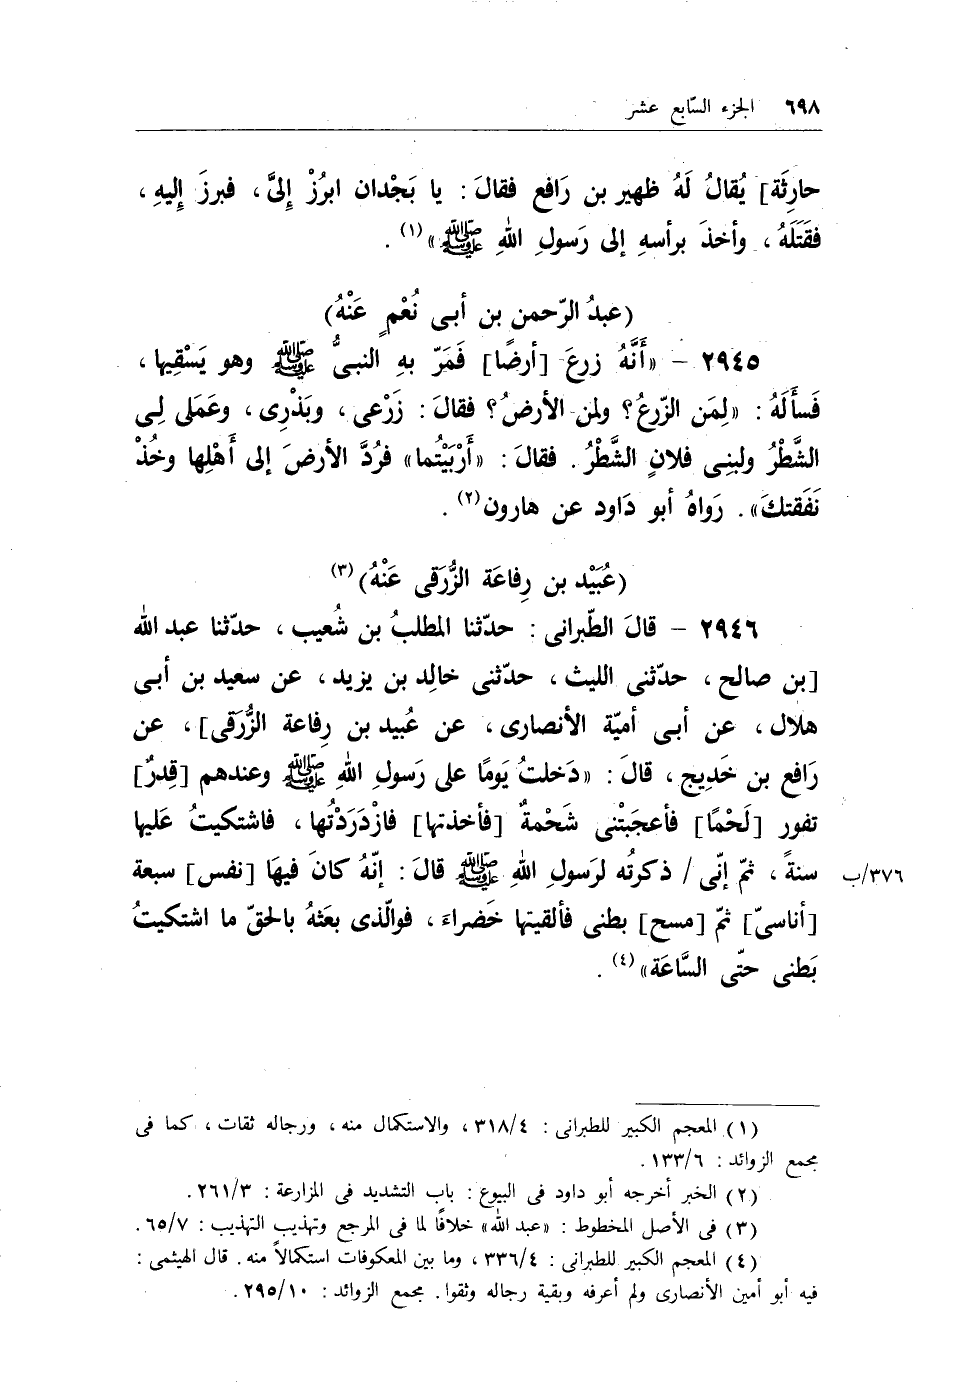 ٦٩٨ الجزء السّابع عشر
حارِثَة] يُقالُ لَهُ ظهير بن رَافع فقالَ : يا بَجْدان ابرُزْ إِلىَّ ، فبرزَ إِليهِ ،
فقَتَلَهُ ، وأخذَ برأسهِ إلى رَسولِ اللهِ ﷺ»(١) .
(عبدُ الرّحمن بن أبى نُعْمٍ عَنْهُ)
٢٩٤٥ – «أَنَّهُ زرعَ [أرضًا] فَمَرّ بهِ النبىُّ ﷺ وهو يَسْقِيها ،
فَسأَلَهُ : «لِمَن الزّرعُ؟ ولمن الأرضُ؟ فقالَ : زَرْعى ، وبَذْرِى ، وعَمَلى لِى
الشَّطْرُ ولبنِى فلانٍ الشَّطْرُ . فقالَ : «أَرْبَيْتُما» فرُدَّ الأرضَ إلى أَهْلِها وخُذْ
نَفَقتكَ» . رَواهُ أبو دَاود عن هارون(٢) .
(عُبَيْد بن رِفاعَة الزُّرَقى عَنْهُ)(٣)
٢٩٤٦ – قالَ الطّبرانى : حدّثنا المطلبُ بن شُعيب ، حدّثنا عبد الله
[بن صالح ، حدّثنى الليث ، حدّثنى خالِد بن يزيد ، عن سعيد بن أبى
هلال ، عن أبى أميّة الأنصارى ، عن عُبيد بن رِفاعة الزُّرَقى] ، عن
رَافع بن خَدِيج ، قالَ : «دَخلتُ يَومًا على رَسولِ اللهِ ﷺ وعندهم [قِدرٌ]
تفور [لَحْمًا] فأعجَبَتْنى شَحْمةٌ [فأخذتها] فازْدَرَدْتُها ، فاشتكيتُ عَليها
سنةً ، ثمّ إنّى / ذكرتُه لرَسولِ اللهِ ﷺ قالَ : إنّهُ كانَ فيهَا [نفس] سبعة ٣٧٦/ب
[أناسىّ] ثمّ [مسح] بطنى فألقيتها خَضراءَ ، فوالّذى بعَثهُ بالحقّ ما اشتكيتُ
بَطنى حتّى السَّاعَة»(٤) .
(١) المعجم الكبير للطبرانى : ٣١٨/٤ ، والاستكمال منه ، ورجاله ثقات ، كما فى
مجمع الزوائد : ١٣٣/٦ .
(٢) الخبر أخرجه أبو داود فى البيوع : باب التشديد فى المزارعة : ٢٦١/٣ .
(٣) فى الأصل المخطوط : «عبد الله» خلافًا لما فى المرجع وتهذيب التهذيب : ٦٥/٧ .
(٤) المعجم الكبير للطبرانى : ٣٣٦/٤ ، وما بين المعكوفات استكمالاً منه . قال الهيثمى :
فيه أبو أمين الأنصارى ولم أعرفه وبقية رجاله وثقوا . مجمع الزوائد : ٢٩٥/١٠ .